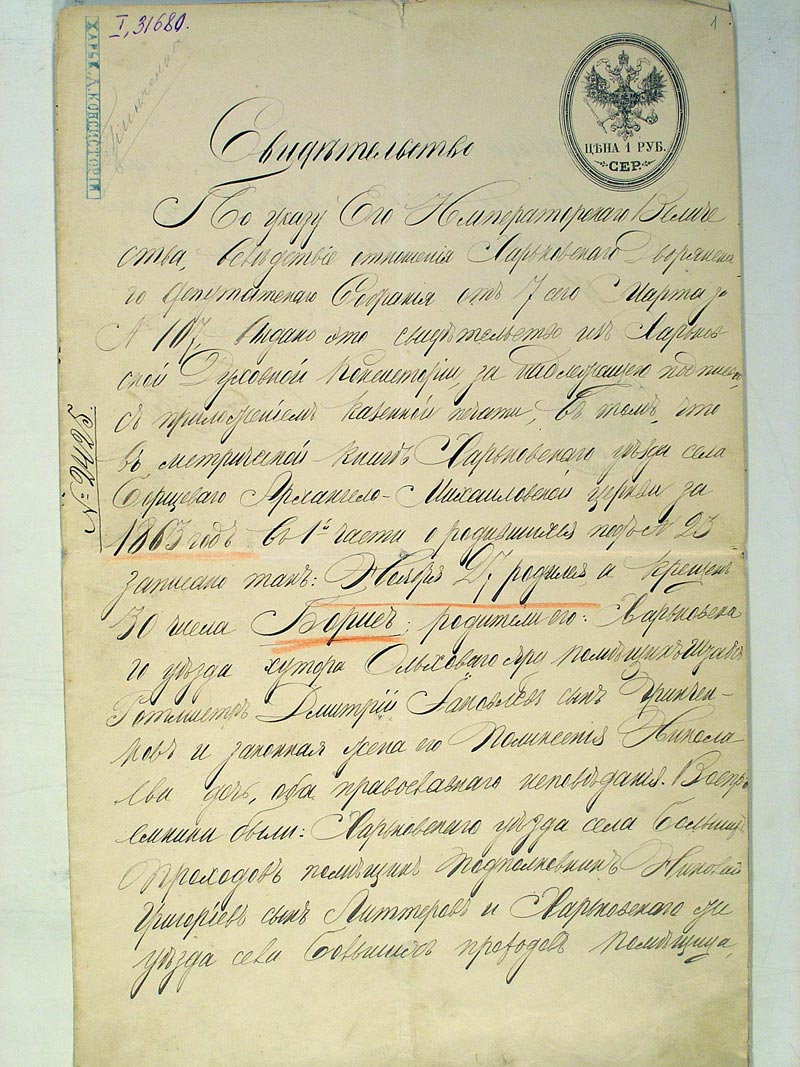 I, 31680.
1
ХАРЬК. Д. КОНСИСТОРІИ
ЦѢНА 1 РУБ.
СЕР.
Свидѣтельство
По указу Его Императорскаго Величе
ства, вслѣдствіе отношенія Харьковскаго Дворянска
го Депутатскаго Собранія отъ 7 сего Марта за
№ 107, выдано это свидѣтельство изъ Харьков
ской Духовной Консисторіи, за надлежащею подписью,
съ приложеніемъ казенной печати, въ томъ, что
въ метрической книгѣ Харьковскаго уѣзда села
Борщеваго Архангело-Михаиловской церкви за
№ 2425.
1863 годъ въ 1й части о родившихся подъ № 23
записано такъ: Ноября 27 родился, а крещенъ
30 числа Борисъ; родители его: Харьковска
го уѣзда хутора Ольховаго Яру помѣщикъ Штабъ
Ротмистръ Дмитрій Яковлевъ сынъ Гринчен-
ковъ и законная жена его Поликсенія Никола
ева дочь, оба православнаго исповѣданія. Воспрі
емники были: Харьковскаго уѣзда села Большихъ
Проходовъ помѣщикъ Подполковникъ Николай
Григоріевъ сынъ Литтеровъ и Харьковскаго же
уѣзда села Большихъ проходовъ помѣщица,